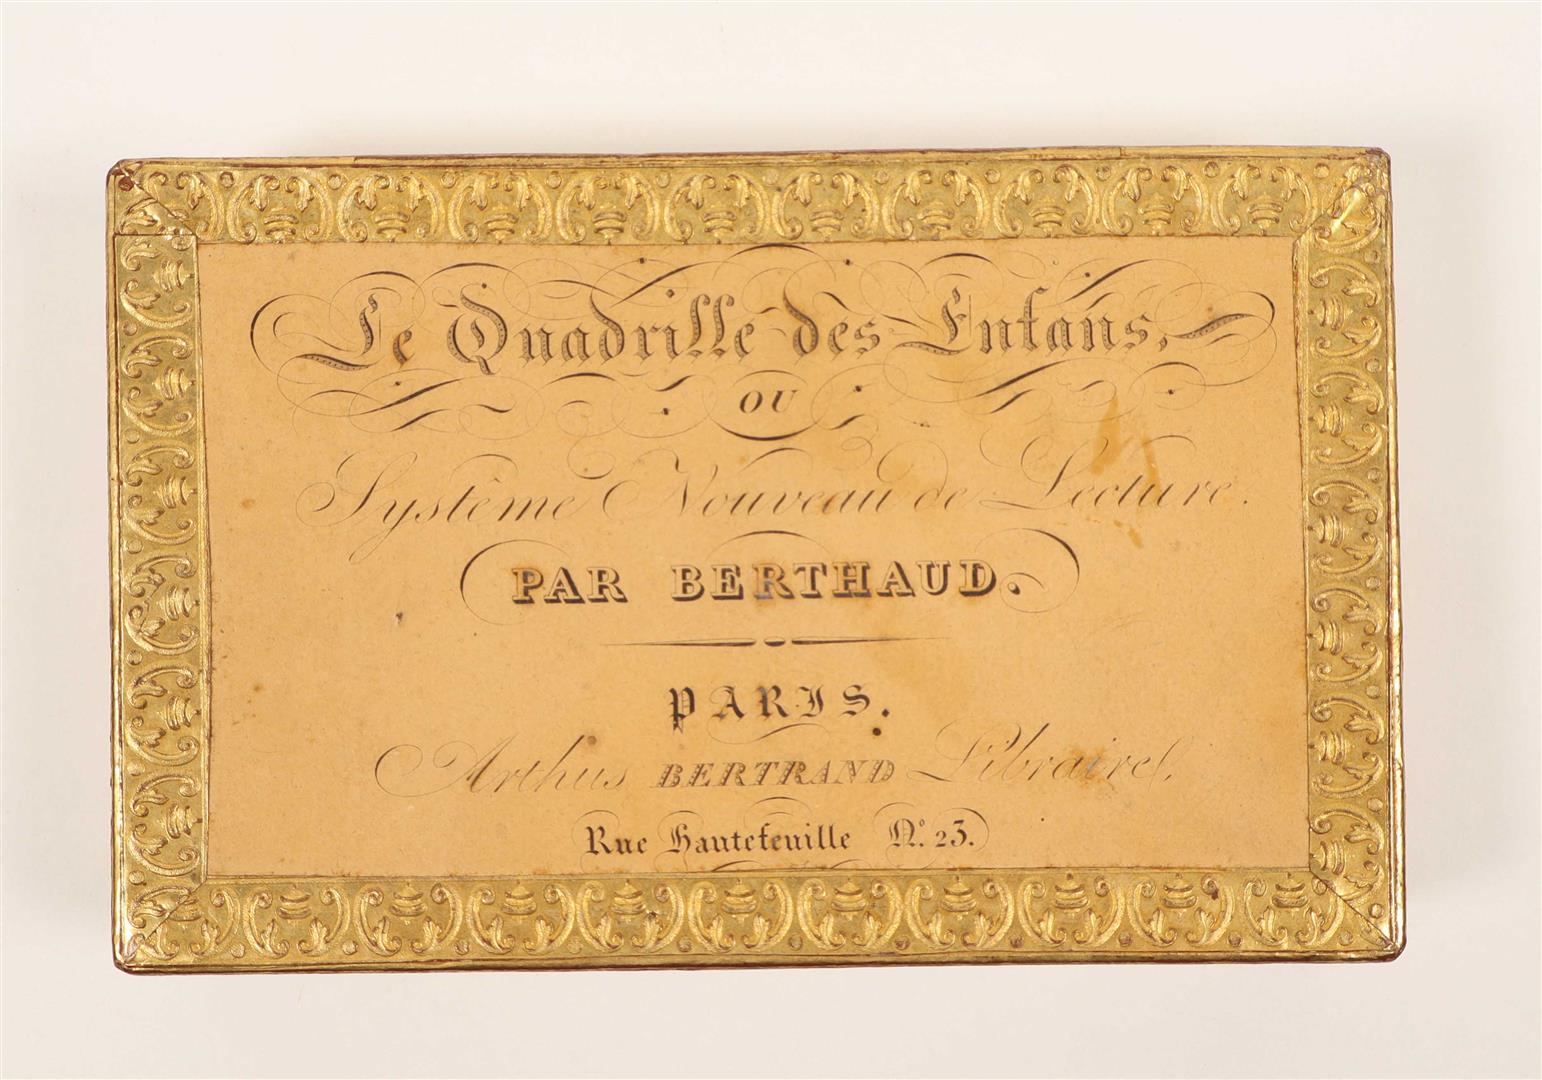 Le Quadrille des Enfans,
OU
Système Nouveau de Lecture.
PAR BERTHAUD.
PARIS.
Arthus BERTRAND Libraire,
Rue Hautefeuille N.º 23.